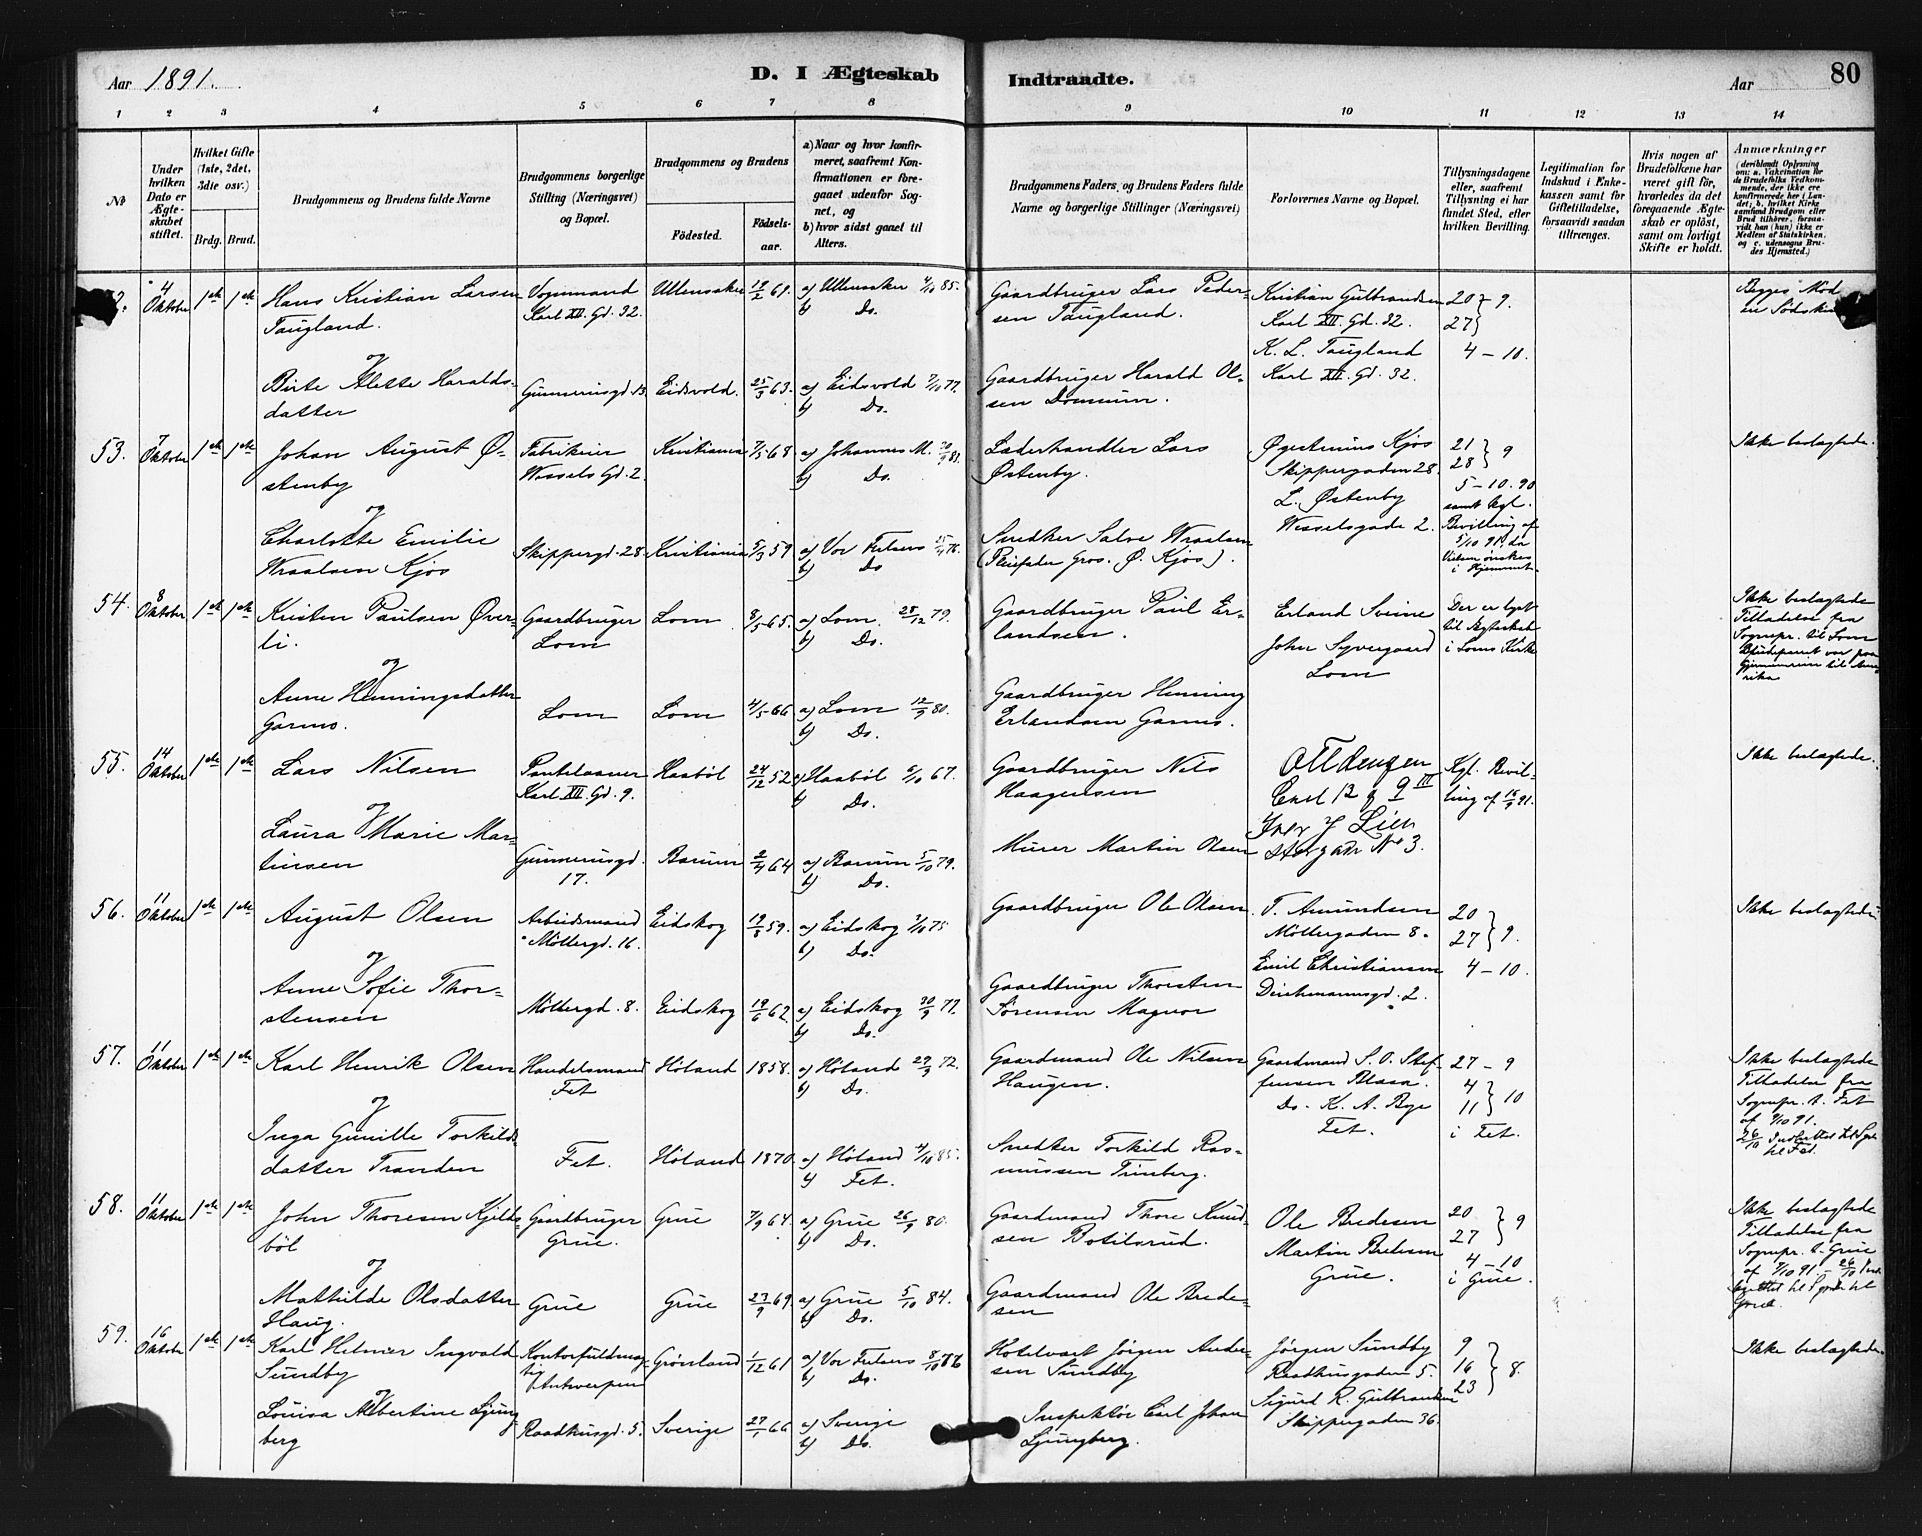 Aar 1891.
D. I Ægteskab
Indtraadte.
Aar
80
1 2 3 4 5 6 7 8 9 10 11 12 13 14
No
Under
hvilken
Dato er
Ægte-
skabet
stiftet.
Hvilket Gifte
(1ste, 2det,
3die osv.)
Brdg. Brud.
Brudgommens og Brudens fulde Navne
Brudgommens borgerlige
Stilling (Næringsvei)
og Bopæl.
Brudgommens og Brudens
Födested.
Födsels-
aar.
a) Naar og hvor konfir-
meret, saafremt Kon-
firmationen er fore-
gaaet udenfor Sog-
net, og
b) hvor sidst gaaet til
Alters.
Brudgommens Faders, og Brudens Faders fulde
Navne og borgerlige Stillinger (Næringsvei)
Forlovernes Navne og Bopæl.
Tillysningsdagene
eller, saafremt
Tillysning ei har
fundet Sted, efter
hvilken Bevilling.
Legitimation for
Indskud i Enke-
kassen samt for
Giftetilladelse,
forsaavidt saadan
tiltrænges.
Hvis nogen af
Brudefolkene har
været gift för,
hvorledes da det
foregaaende Ægte-
skab er oplöst,
samt om lovligt
Skifte er holdt.
Anmærkninger
(deriblandt Oplysning
om: a. Vakcination for
de Brudefolks Vedkom-
mende, der ikke ere
konfirmerede her i Lan-
det; b. hvilket Kirke
samfund Brudgom eller
Brud tilhörer, forsaa-
vidt han (hun) ikke er
Medlem af Statskirken,
og c. udensogns Bru-
des Hjemsted.)
4
Oktober 1ste 1ste
Hans Kristian Larsen
Taugland.
Vognmand
Karl XII. Gd. 32.
Ullensaker 19/2 61.
a) Ullensaker 4/10 85.
b) Do.
Gaardbruger Lars Peder-
sen Taugland.
Kristian Gulbrandsen
Karl XII. Gd. 32.
K. L. Taugland
Karl XII. Gd. 32.
20 } 9.
27 }
4 – 10.
og
Birte Alette Haralds-
datter
Gunnerusgd. 13.
Eidsvold. 25/3 63.
a) Eidsvold 7/10 77.
b) Do.
Gaardbruger Harald Ol-
sen
53. 7
Oktober 1ste 1ste
Johan August Ø-
stenby
Fabrikeier
Wessels Gd. 2.
Kristiania 7/5 68
a) Johannes M.
b) Do.
Læderhandler Lars
Østenby.
Kjos
Skippergaden 28.
L. Østenby
Wesselsgade 2.
21 } 9
28 }
5 – 10. 90
samt kgl.
Bevilling af
5/10 91, da
Vielsen ønskes
i Hjemmet.
Ikke beslægtede.
og
Charlotte Emilie
Wraalsen Kjos
Skippergd. 28.
Kristiania 5/3 59
a) Vor Frelsers
b) Do
Snedker Salve Wraalsen
(Pleiefader Gros. Ø. Kjos).
54. 8
Oktober 1ste 1ste
Kristen Paulsen Øver-
li.
Gaardbruger
Lom
Lom 8/5 65.
a) Lom. 28/12 79.
b) Do.
Gaardbruger Paul Er-
landsen.
Erland Sveine
John Syvergaard
Lom
Der er lyst
til Ægteskab
i Loms Kirke
Ikke beslægtede
Tilladelse fra
Sognepr. til Lom
Brudeparret var paa
Gjennemreise til Ame-
rika
og
Anne Henningsdatter
Garmo.
Lom
Lom 4/5 66
a) Lom 12/9 80.
b) Do.
Gaardbruger Henning
Erlandsen Garmo.
55. 14
Oktober 1ste 1ste
Lars Nilsen
Pantelaaner
Karl XII. Gd. 9.
Haabøl 24/12 52
a) Haabøl 6/10 67.
b) Do.
Gaardbruger Nils
Haagensen
Carl 12 g 9 III
Iver J Lien
Storgade No 3.
Kgl. Bevil-
ling af 15/9 91.
Ikke beslægtede.
og
Laura Marie Mar-
tinsen
Gunnerusgd.
17.
Bærum 2/4 64
a) Bærum 5/10 79.
b) Do.
Murer Martin Olsen
56. 11
Oktober 1ste 1ste
August Olsen
Arbeidsmand
Møllergd. 16.
Eidskog 19/8 59.
a) Eidskog 3/10 75
b) Do.
Gaardbruger Ole Olsen.
T. Amundsen
Møllergaden 8.
Emil Christiansen
Deichmannsgd. 2.
20 } 9.
27 }
4 – 10.
Ikke beslægtede
og
Anne Sofie Thor-
stensen
Møllergd. 8.
Eidskog 19/6 62.
a) Eidskog 30/9 77.
b) Do.
Gaardbruger Thorsten
Sørensen Magnor
57. 11
Oktober 1ste 1ste
Karl Henrik Olsen
Handelsmand
Fet
Høland 1858.
a) Høland 29/9 72.
b) Do.
Gaardmand Ole Nilsen
Haugen.
Gaardmand S. O. Stef-
fensen
Do. K. A. Bye
Fet.
27 – 9
4 } 10
11 }
i Fet.
Ikke beslægtede
Tilladelse fra
Sognepr. t. Fet
af 9/10 91.
og
Inga Gunille Torkilds-
datter Tranden
Fet.
Høland 1870
a) Høland 4/10 85.
b) Fet.
Snedker Torkild Ras-
mussen
58. 11
Oktober 1ste 1ste
John Thoresen Kjelds-
böl
Gaardbruger
Grue.
Grue 7/9 64.
a) Grue 26/9 80.
b) Do.
Gaardmand Thore Knud-
sen
Ole Bredesen
Martin Bredesen
Grue.
20 } 9
27 }
4 – 10
i Grue.
Ikke beslægtede
Tilladelse fra
Sognepr. t. Grue
af 7/10 91
og
Mathilde Olsdatter
Haug.
Grue
Grue 27/9 69.
a) Grue 5/10 84.
b) Do.
Gaardmand Ole Brede-
sen
59. 16
Oktober 1ste 1ste
Karl Helmer Ingvald
Sundby
Kontorfuldmæg-
tig
Antwerpen
Grønland 1/12 61
a) Vor Frelsers
b) Do.
Hotelvært Jørgen Ander-
sen Sundby
Jørgen Sundby
Raadhusgaden 5.
Sigurd R. Gulbrandsen
Skippergaden 36.
9
16 } 8.
23
Ikke beslægtede.
og
Louisa Albertine Ljung-
berg
Raadhusgd. 5.
Sverige 27/1 66
a) Sverige
b) Do.
Inspektör Carl Johan
Ljungberg.